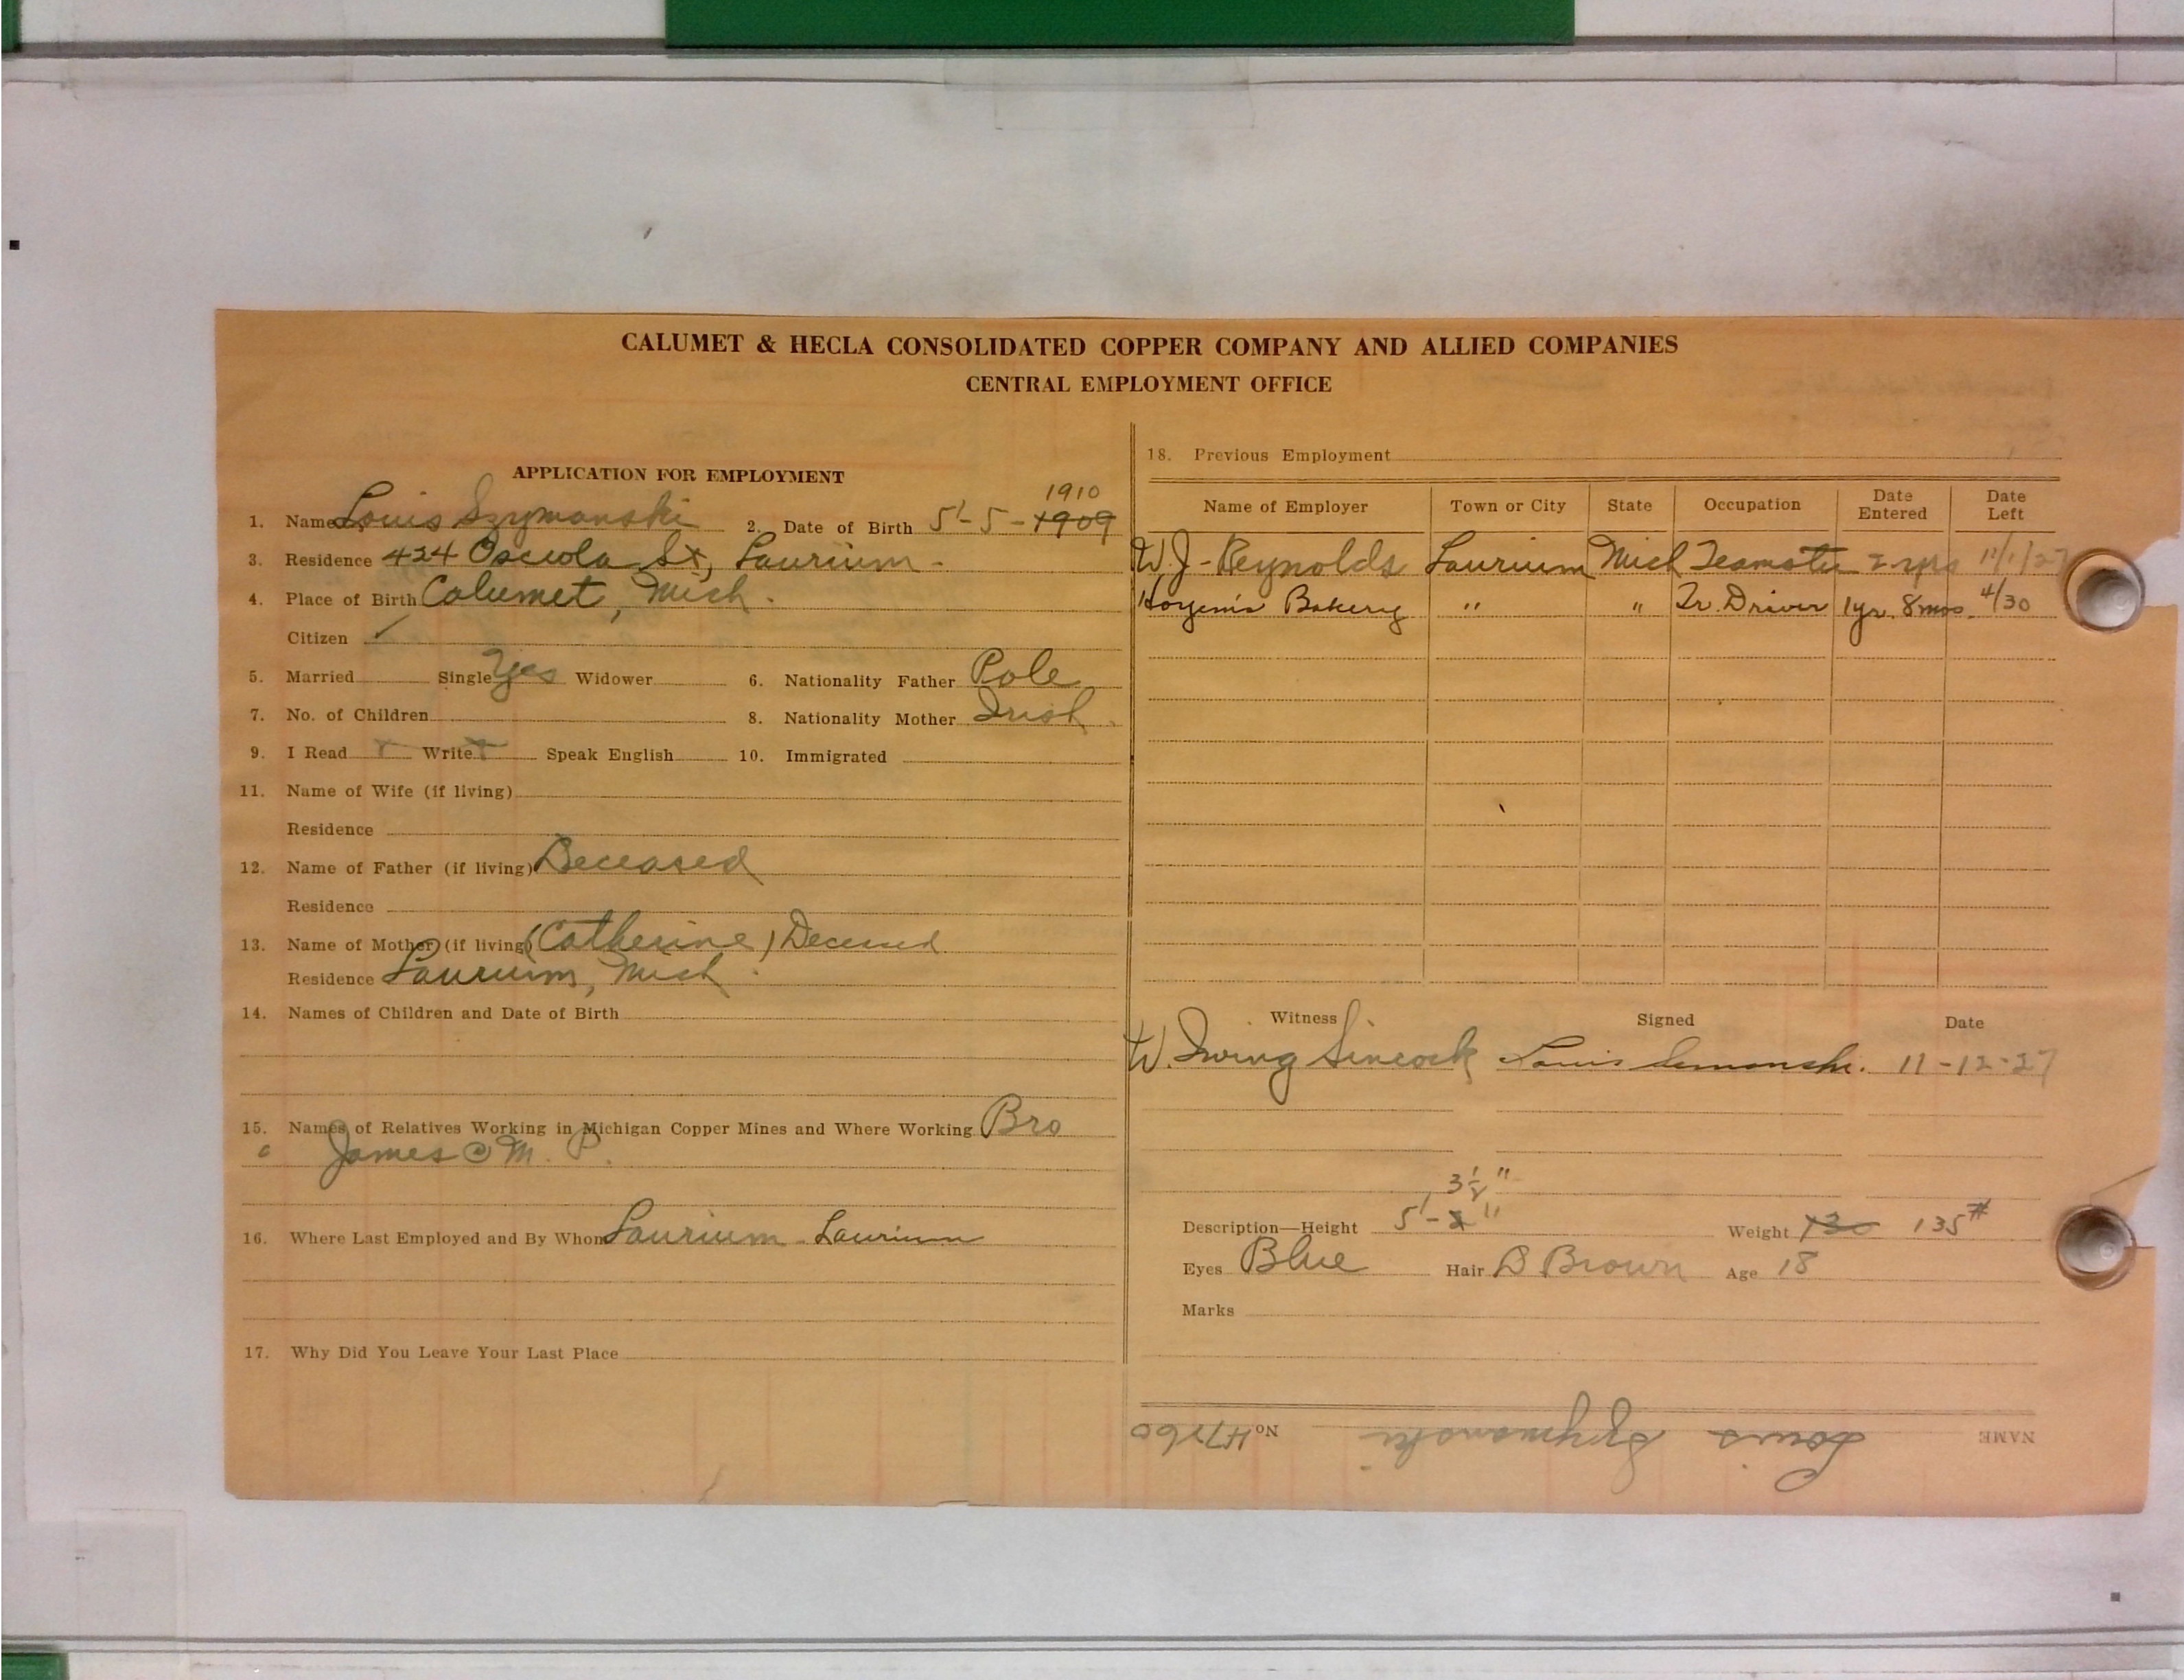 CALUMET & HECLA CONSOLIDATED COPPER COMPANY AND ALLIED COMPANIES
CENTRAL EMPLOYMENT OFFICE
APPLICATION FOR EMPLOYMENT
1910
1. Name Louis Szymanski 2. Date of Birth 5-5-1909
3. Residence 424 Osceola St, Laurium
4. Place of Birth Calumet, Mich.
Citizen ✓
5. Married Single Yes Widower 6. Nationality Father Pole
7. No. of Children 8. Nationality Mother Irish
9. I Read Write Speak English 10. Immigrated
11. Name of Wife (if living)
Residence
12. Name of Father (if living) Deceased
Residence
13. Name of Mother (if living) (Catherine) Deceased
Residence Laurium, Mich.
14. Names of Children and Date of Birth
15. Names of Relatives Working in Michigan Copper Mines and Where Working Bro
James C M. P.
16. Where Last Employed and By Whom Laurium - Laurium
17. Why Did You Leave Your Last Place
18. Previous Employment
Name of Employer Town or City State Occupation Date Entered Date Left
W. J. Reynolds Laurium Mich Teamster 2 yrs 11/1/27
Bakery " " Tr. Driver 1 yr. 8 mos. 4/30
Witness Signed Date
W. Irving Sincock Louis 11-12-27
3½"
Description—Height 5'-2" Weight 130 135#
Eyes Blue Hair D Brown Age 18
Marks
NAME Louis Szymanski No